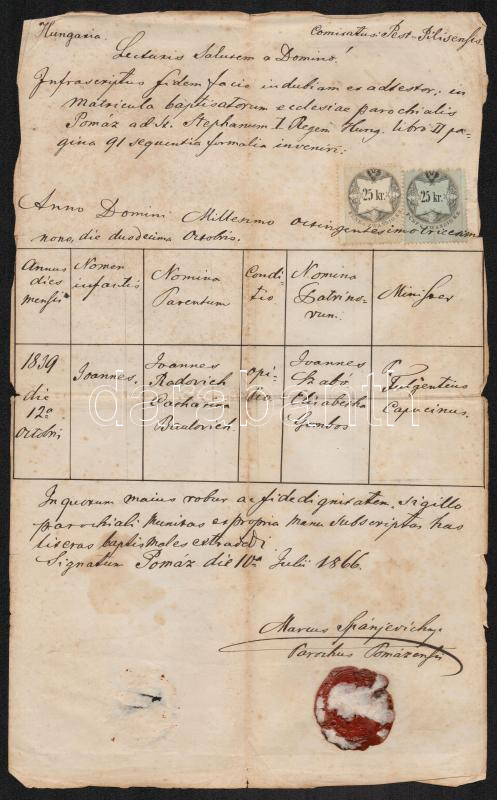 Hungaria. Comitatus: Pest-Pilisensis.
Lecturis Salutem a Domino!
Infrascriptus fidem facio indubiam et adtestor; in
matricula baptisatorum ecclesiae parochialis
Pomáz ad St. Stephanum I Regem Hung. libro II pa-
gina 91 sequentia formalia inveniri:
25 kr. 25 kr.
Anno Domini Millesimo octingentesimo trigesimo
nono, die duodecima Octobris.
Annus
dies
mensis
Nomen
infantis
Nomina
Parentum
Condi-
tio
Nomina
Patrino-
rum.
Minister
1839
die
12a
Octobris
Joannes.
Joannes
Radovich
Catharina
opi-
Joannes
Szabó
Elisabetha
Gombos
P.
Fulgentius
Capucinus.
In quorum maius robur ac fidedignitatem, sigillo
parochiali munitas et propria manu subscriptas, has
literas baptismales extradedi
Signatum Pomáz die 10a Julii 1866.
Marcus
Parochus Pomázensis
darabanth